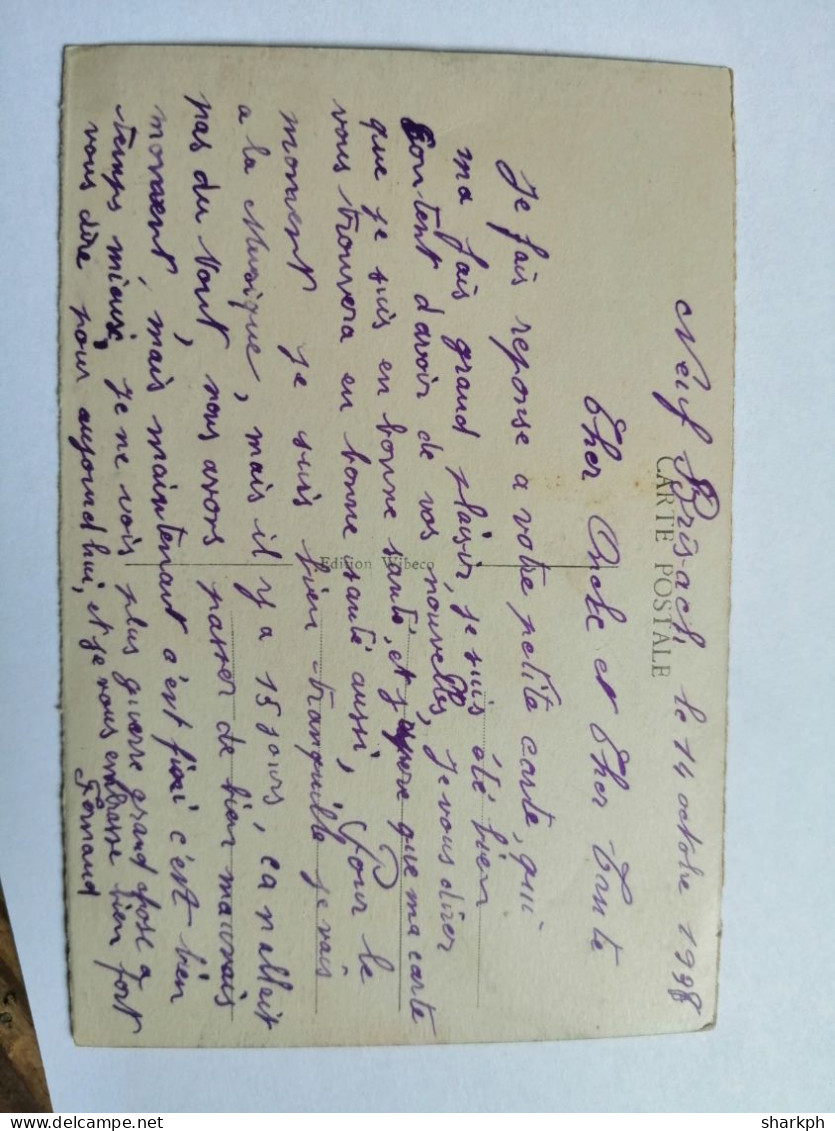 Neuf Brisach, le 14 octobre 1998
CARTE POSTALE
Cher Oncle et Cher Tante
Je fais reponse a votre petite carte, qui
ma fais grand plaisir, je suis été bien
Content davoir de vos nouvelles, Je vous direr
que je suis en bonne santé, et j'espere que ma carte
vous trouvera en bonne santé aussi, Pour le
moment je suis bien tranquille je vais
a la Musique, mais il y a 15 jours, ça n'allait
pas du tout, nous avons passer de bien mauvais
moment, mais maintenant c'est fini c'est bien
temps mieux, je ne vois plus guerre grand chose a
vous dire pour aujourd'hui, et je vous embrasse bien fort
Fernand
Edition Wibeco
sharkph